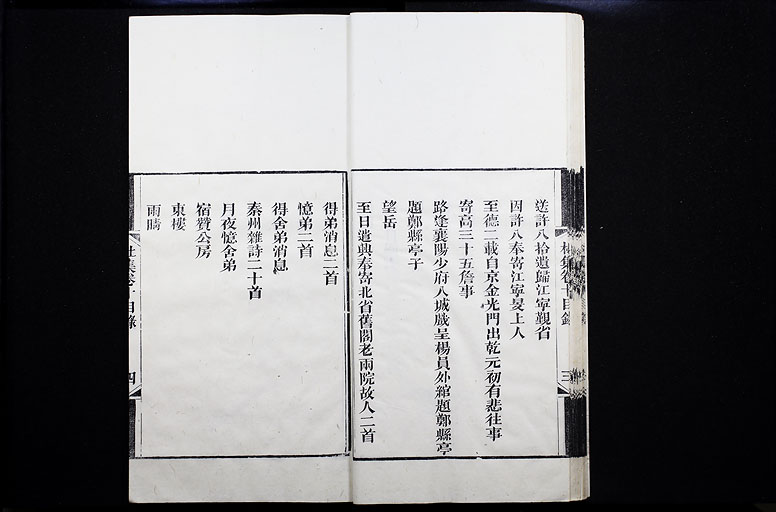 杜集卷十目錄
三
送許八拾遺歸江寧覲省
因許八奉寄江寧旻上人
至德二載自京金光門出乾元初有悲往事
寄高三十五詹事
路逢襄陽少府入城戲呈楊員外綰題鄭縣亭
題鄭縣亭子
望岳
至日遣興奉寄北省舊閣老兩院故人二首
得弟消息二首
憶弟二首
得舍弟消息
秦州雜詩二十首
月夜憶舍弟
宿贊公房
東樓
雨晴
杜集卷十目錄
四